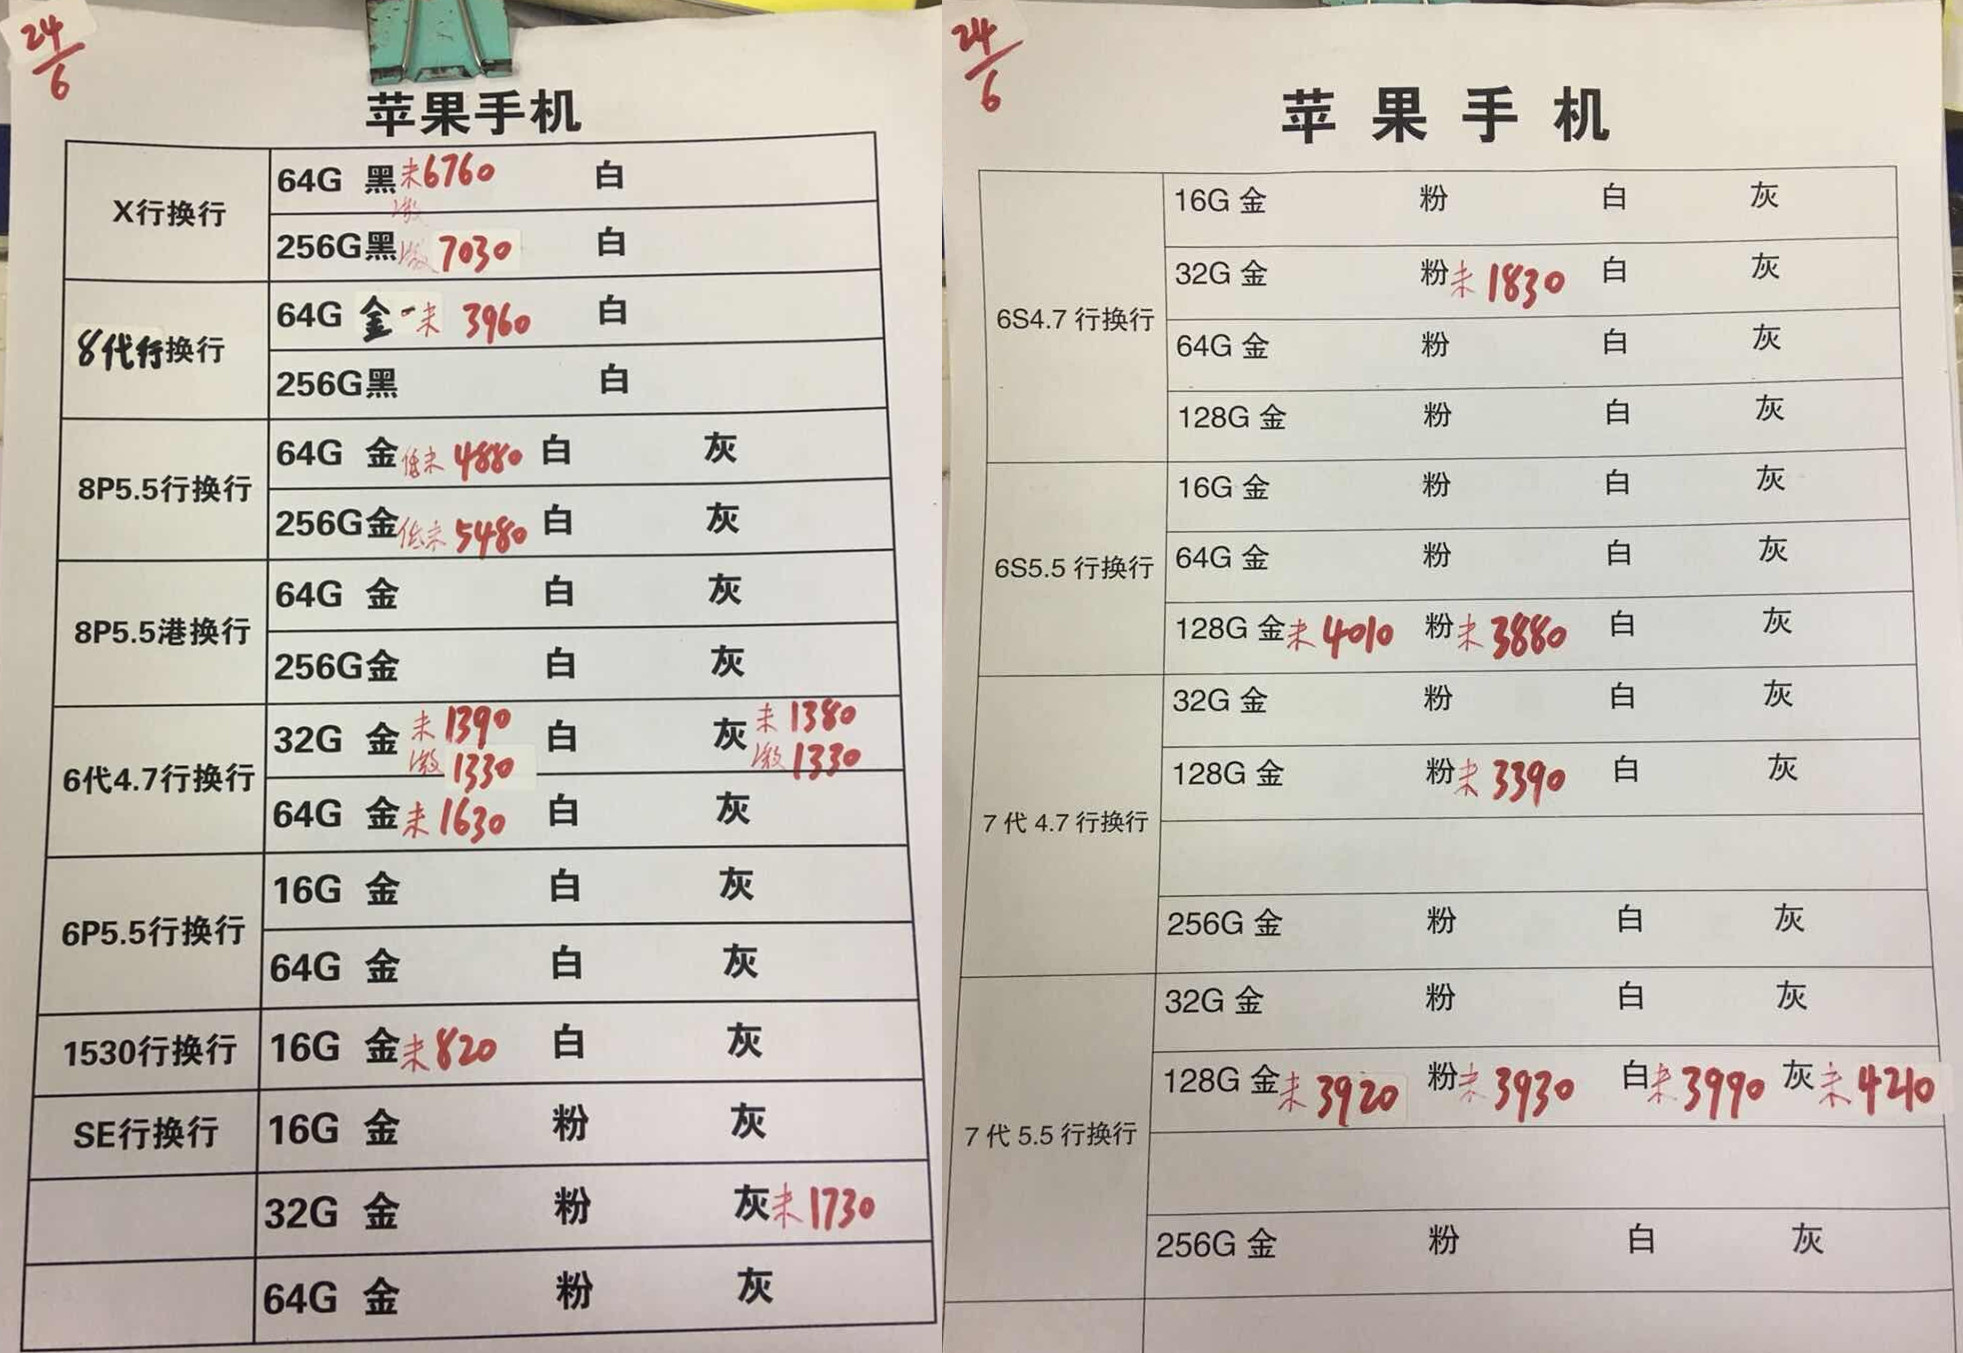 24/6
苹果手机
X行换行
64G 黑 未6760 白
激
256G黑 激 7030 白
8代行换行
64G 金 - 未 3960 白
256G黑 白
8P5.5行换行
64G 金 低未 4880 白 灰
256G金 低未 5480 白 灰
8P5.5港换行
64G 金 白 灰
256G金 白 灰
6代4.7行换行
32G 金 未1390 白 灰 未1380
激1330 激1330
64G 金 未1630 白 灰
6P5.5行换行
16G 金 白 灰
64G 金 白 灰
1530行换行
16G 金 未820 白 灰
SE行换行
16G 金 粉 灰
32G 金 粉 灰 未1730
64G 金 粉 灰
24/6
苹果手机
6S4.7 行换行
16G 金 粉 白 灰
32G 金 粉 未1830 白 灰
64G 金 粉 白 灰
128G 金 粉 白 灰
6S5.5 行换行
16G 金 粉 白 灰
64G 金 粉 白 灰
128G 金 未4010 粉 未3880 白 灰
7 代 4.7 行换行
32G 金 粉 白 灰
128G 金 粉 未3390 白 灰
256G 金 粉 白 灰
7 代 5.5 行换行
32G 金 粉 白 灰
128G 金 未3920 粉 未3930 白 未3990 灰 未4210
256G 金 粉 白 灰